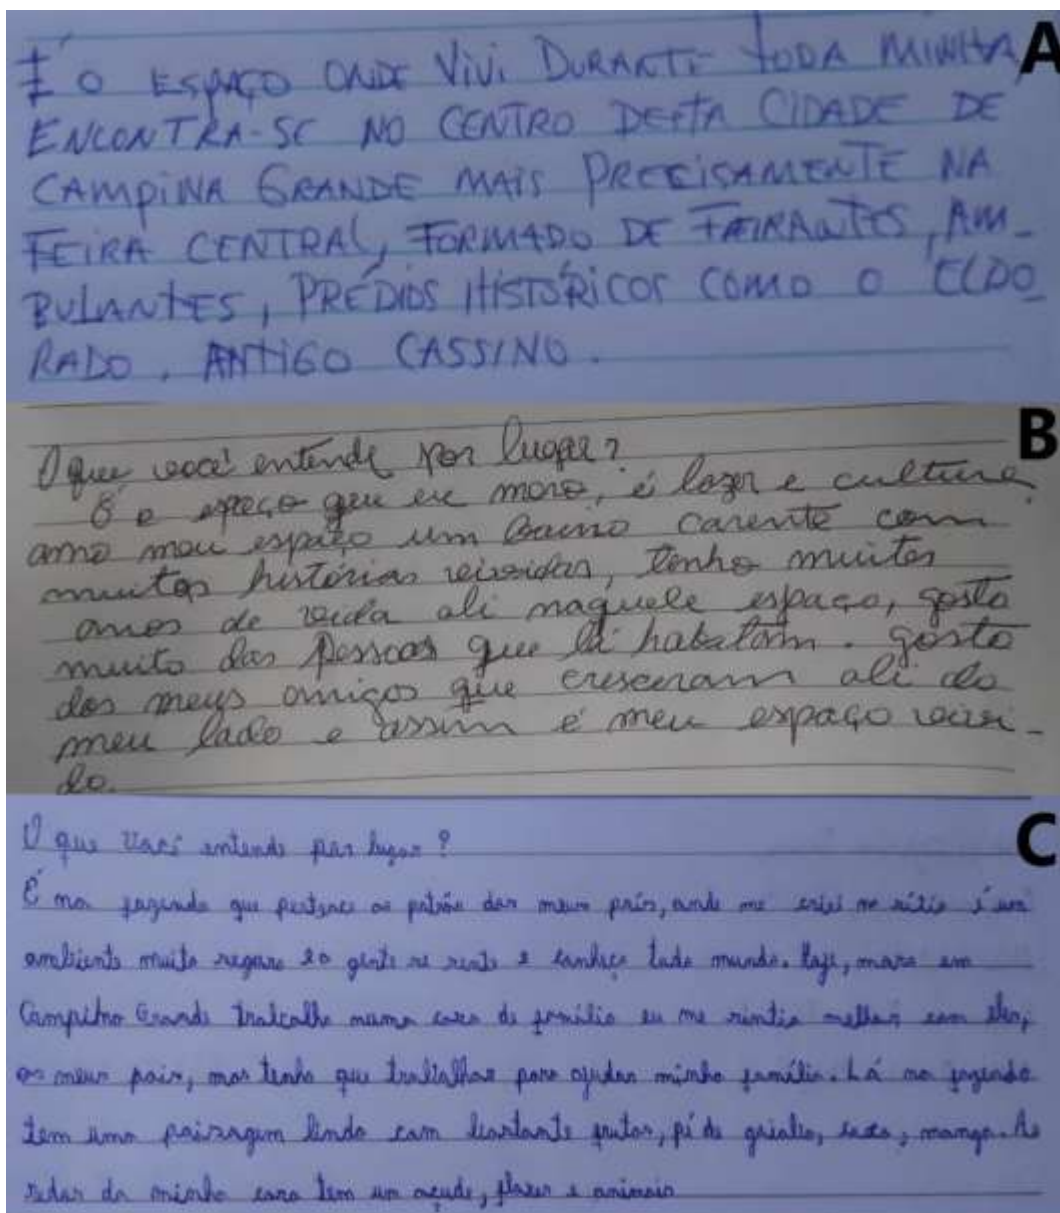 A
É O ESPAÇO ONDE VIVI DURANTE TODA MINHA,
ENCONTRA-SE NO CENTRO DESTA CIDADE DE
CAMPINA GRANDE MAIS PRECISAMENTE NA
FEIRA CENTRAL, FORMADO DE FEIRANTES, AM-
BULANTES, PRÉDIOS HISTÓRICOS COMO O ELDO
RADO, ANTIGO CASSINO.
B
O que você entende por lugar?
É o espaço que eu moro, é lazer e cultura,
amo meu espaço um bairro carente com
muitas histórias vividas, tenho muitos
anos de vida ali naquele espaço, gosto
muito das pessoas que lá habitam. gosto
dos meus amigos que cresceram ali do
meu lado e assim é meu espaço vivi-
do.
C
O que você entende por lugar?
É na fazenda que pertence ao patrão dos meus pais, onde me criei no sítio é um
ambiente muito seguro a gente se sente e conheço todo mundo. Hoje, moro em
Campina Grande trabalho numa casa de família eu me sintia melhor com eles,
os meus pais, mas tenho que trabalhar para ajudar minha família. Lá na fazenda
tem uma paisagem linda com bastante frutas, pé de goiaba, manga. Ao
redor da minha casa tem um açude, flores e animais